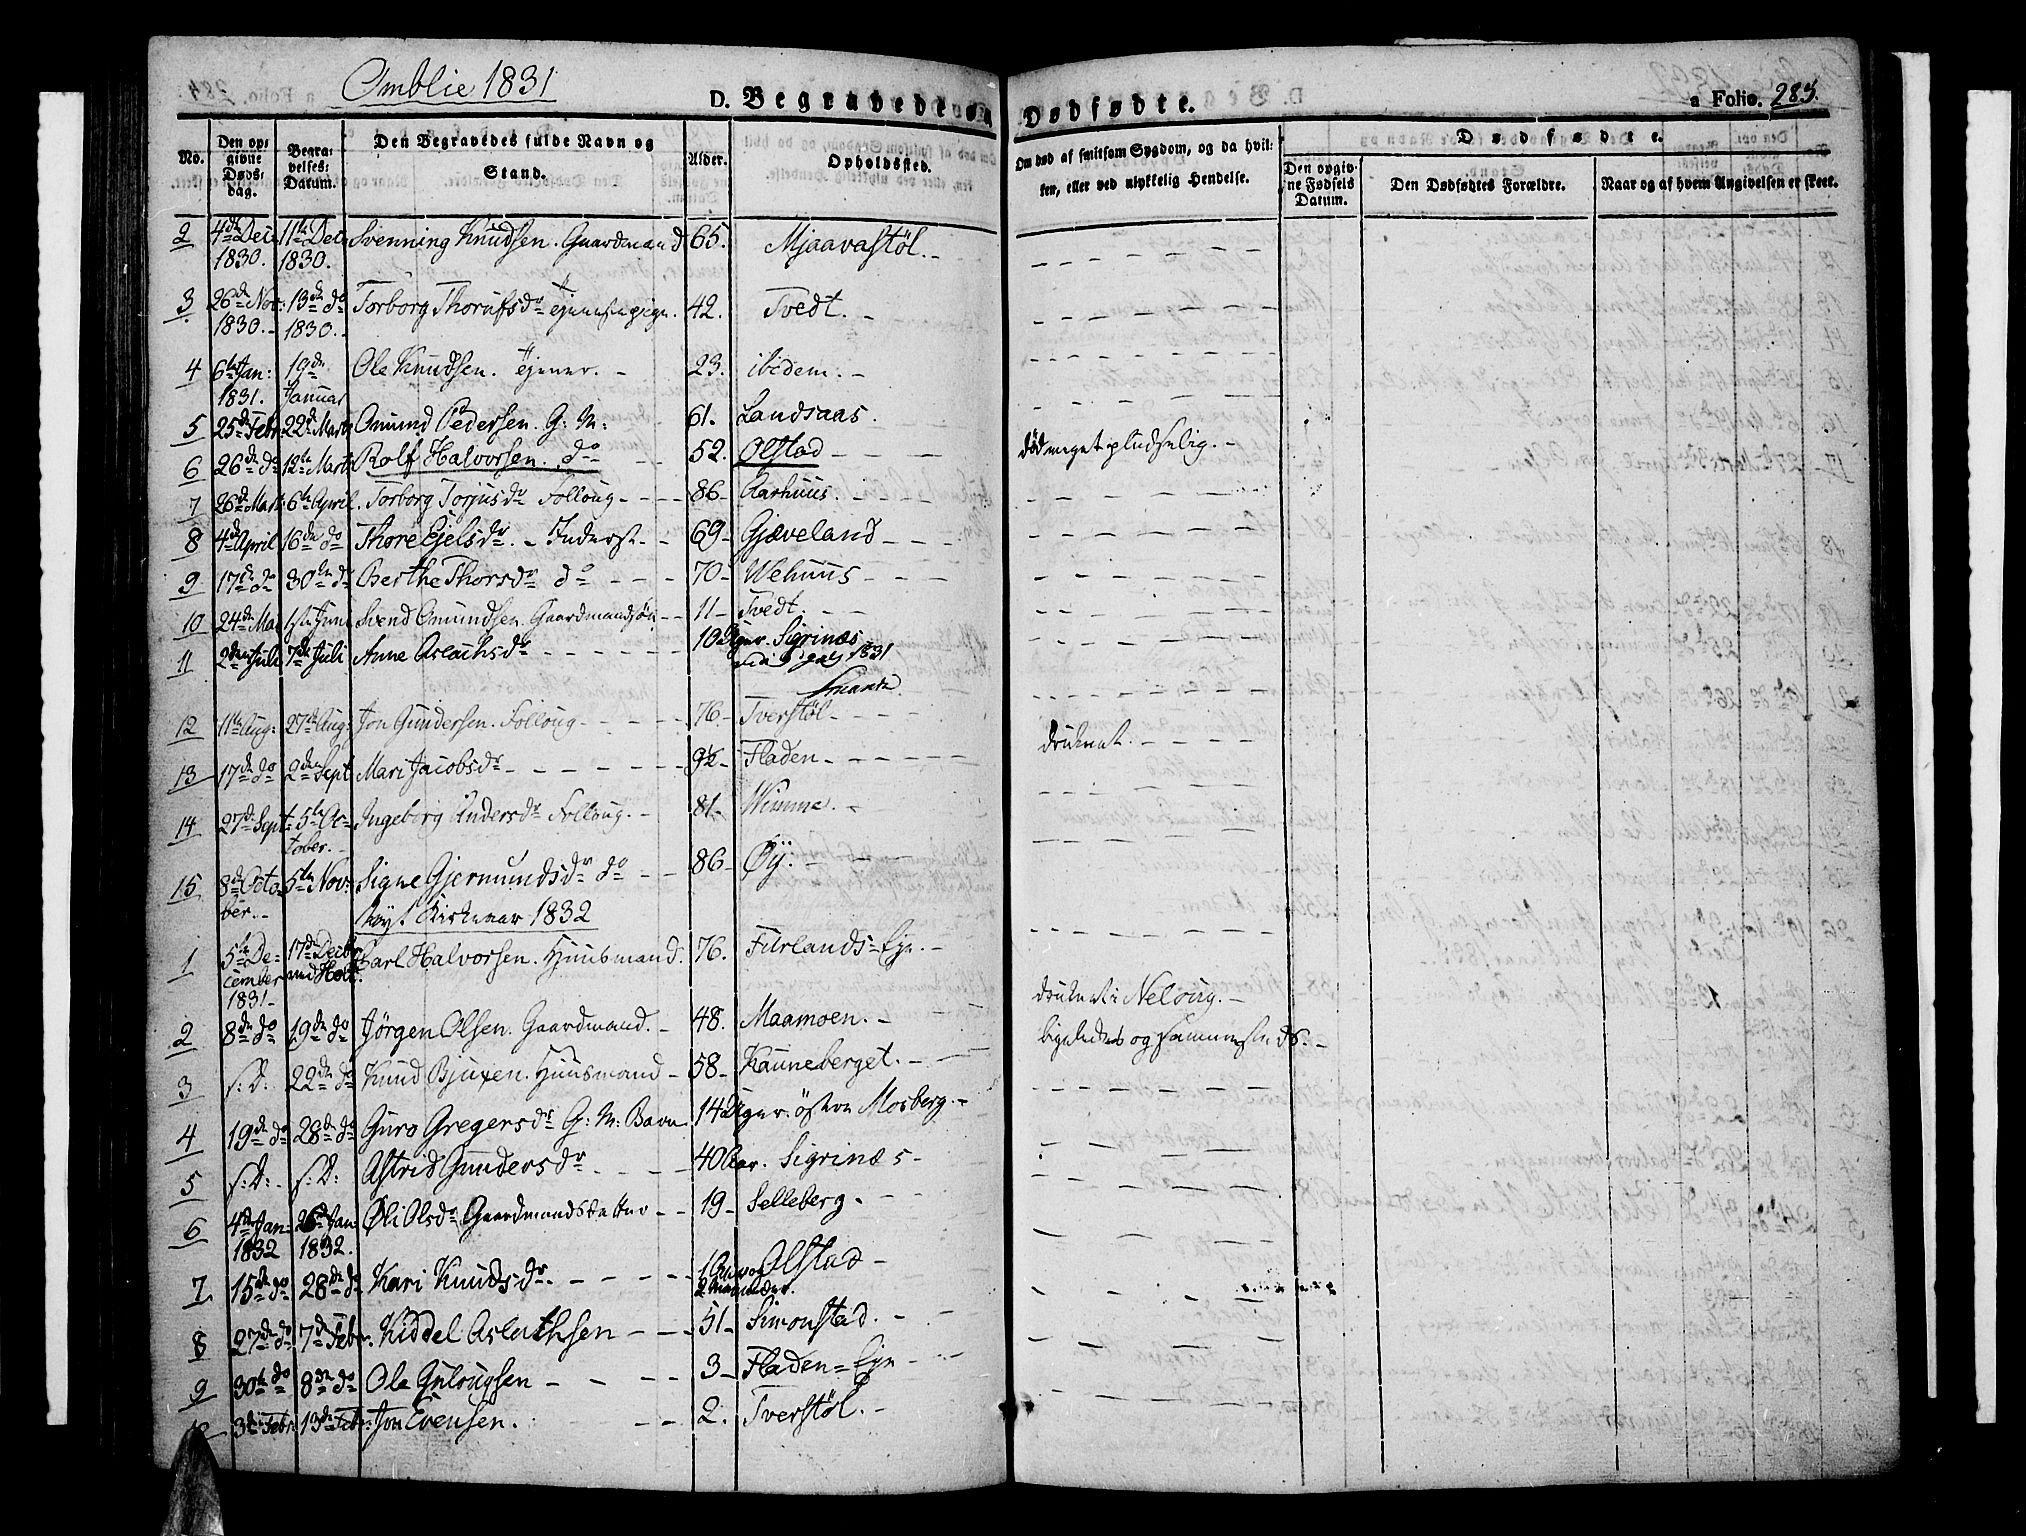 Omblie 1831
D. Begravede og Dødfødte.
a Folio. 285.
No.
Den opgivne Døds-dag.
Begravelses-Datum.
Den Begravedes fulde Navn og Stand.
Alder.
Opholdssted.
Om død af smitsom Sygdom, og da hvilken, eller ved ulykkelig Hendelse.
Dødfødte.
Den opgivne Fødsels Datum.
Den Dødfødtes Forældre.
Naar og af hvem Angivelsen er skeet.
2 4de Dec. 1830. 11te Dec. 1830. Svenning Knudsen. Gaardmand 65. Mjaavastöl.
3 26de Nov: 1830. 13de do 1830. Torborg Thorufsdr Tjenestepige. 42. Tvedt.
4 6te Jan: 1831. 19de Januar Ole Knudsen. Tjener. 23. ibidem.
5 25de Febr 22de Marts Omund Pedersen. G: M: 61. Landsaas.
6 26de do 12te Marts Rolf Halvorsen. do 52. Olstad død meget pludselig.
7 26de Mart. 6te April. Torborg Torjusdr Folloug 86 Aashuus.
8 4de April 16de do Thore Ejelsdr. Inderst 69 Gjæveland
9 17de do 30te do Berthe Thorsdr do 70 Wehuus
10 24de Mai 1ste Juni Svend Omundsen. Gaardmandssön 11 Tvedt.
11 2den Juli 7de Juli Anne Aslachsdr 10 Uger. Sigrinæs
1831
12 11te Aug: 27de Aug: Jon Gundersen. Folloug 76 Tverstöl
13 17de do 2den Sept Mari Jacobsdr 9½ Fladen druknet.
14 27de Sept. 5te October. Ingeborg Andersdr Folloug. 81 Wimme.
15 8de October. 5te Nov: Signe Gjermundsdr do 86 Øÿ.
Nyt Kirkeaar 1832
1 5te December 1831 17de Decbr ved Holt. Carl Halvorsen. Huusmand. 76. Fürlands-Eje.
2 8de do 19de do Jörgen Olsen. Gaardmand. 48. Maamoen. druknet i Neloug.
3 s: D: 22de do Knud Bjusen. Huusmand 58 Kauneberget. ligeledes og sammesteds.
4 19de do 28de do Guro Gregersdr G: M: Barn 14 Uger. östre Mosberg.
5 s: D: s: D: Astrid Gundersdr 40 Aar. Sigrinæs
6 4de Jan: 1832 26de Jan: 1832. Øli Olsdr Gaardmandsdatter 19 Selleberg.
7 15de do 28de do Kari Knudsdr. 1 Aar og 2 Maaneder. Olstad
8 27de do 7de Febr. Kiddel Aslachsen 51 Simonstad.
9 30te do 8de do Ole Gulougsen 3 Fladen-Eje
3de Febr. 13de Febr. Jon Evensen. 2. Tverstöl.